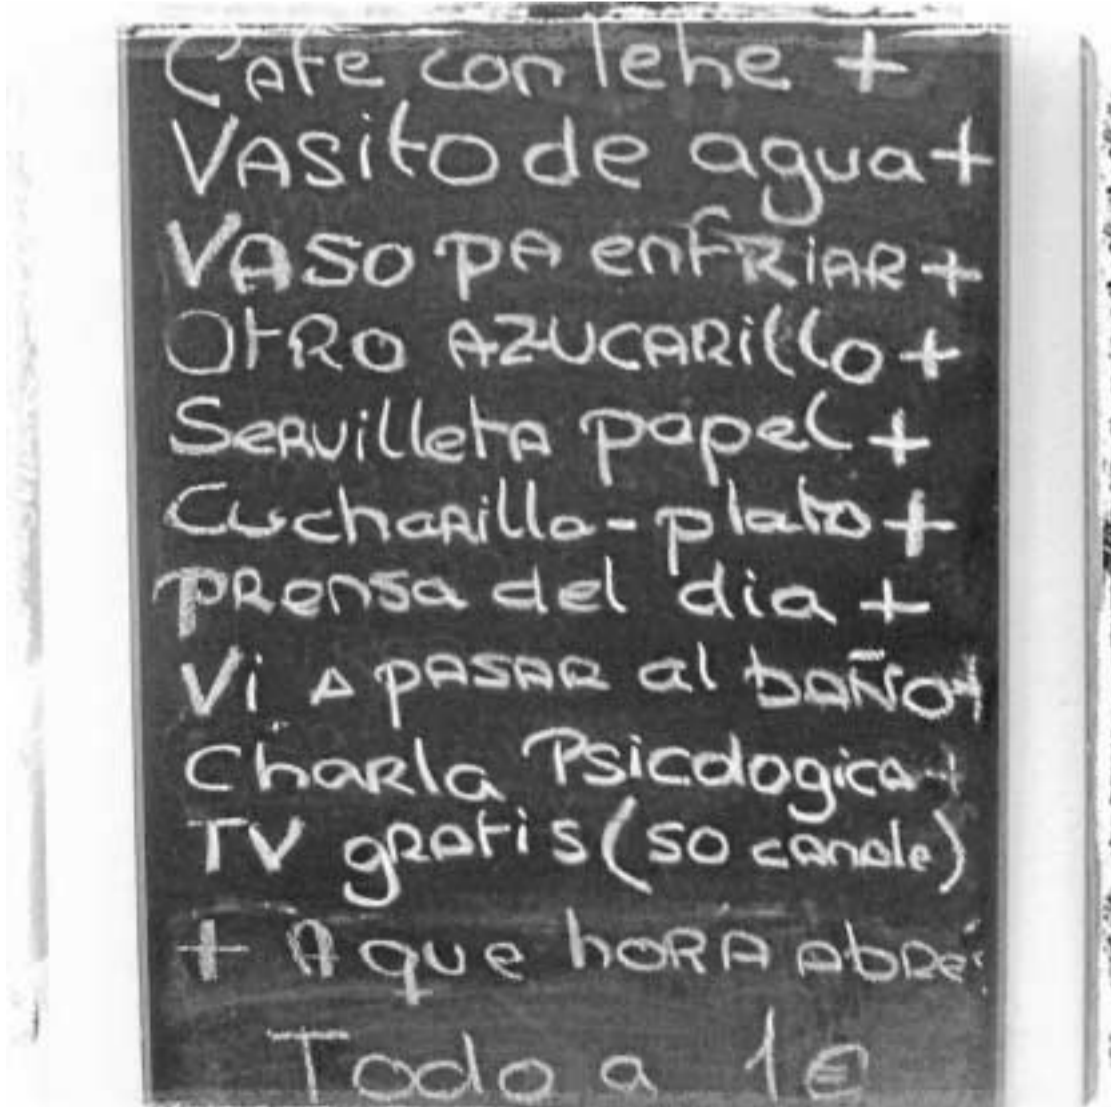 Cafe con lehe +
Vasito de agua +
Vaso pa enfriar +
Otro azucarillo +
Servilleta papel +
Cucharilla - plato +
prensa del dia +
Vi a pasar al baño +
Charla Psicologica +
TV gratis (50 canale)
+ A que hora abrei
Todo a 1€